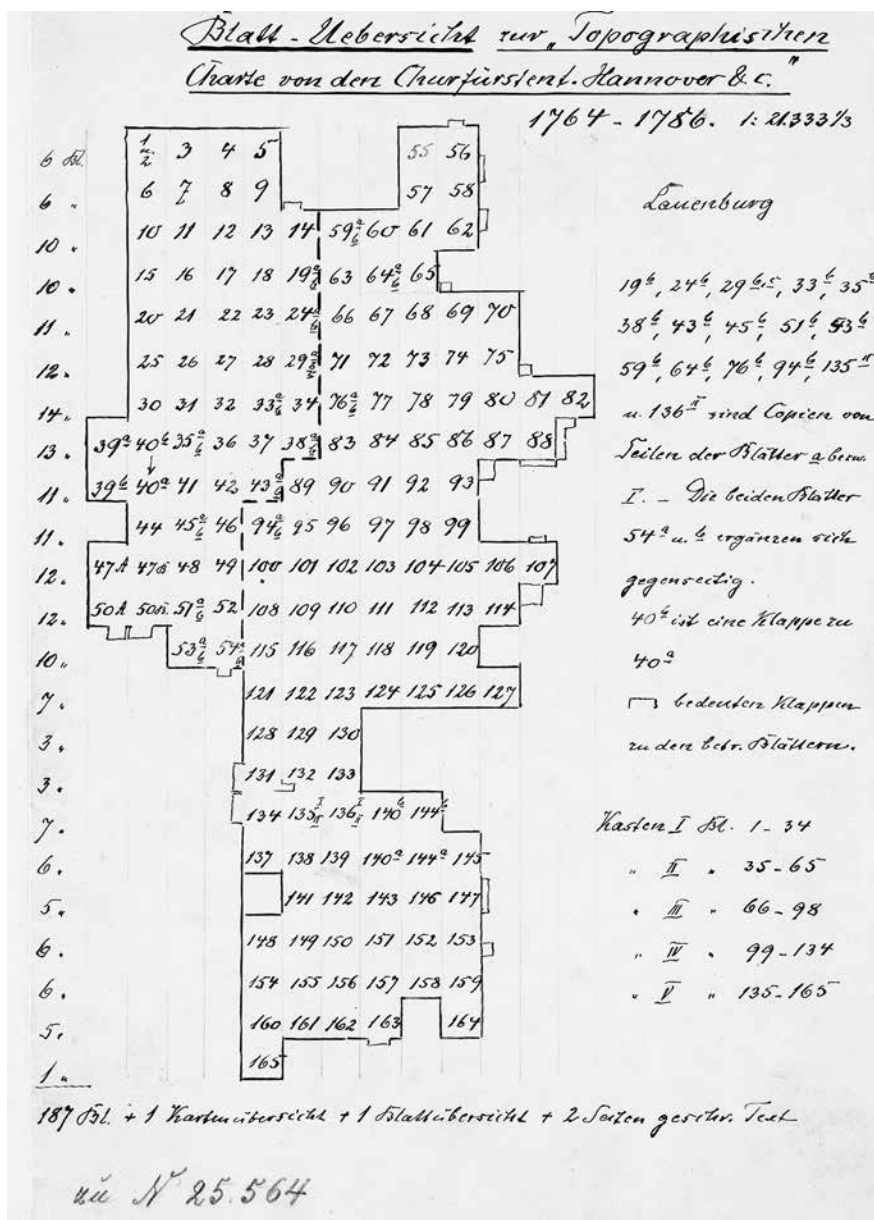 Blatt-Uebersicht zur „Topographischen
Charte von den Churfürstent. Hannover &c."
1764-1786. 1:21.333⅓
6 Bl. 1 u. 2 3 4 5 55 56
6 " 6 7 8 9 57 58
10 " 10 11 12 13 14 59 a b 60 61 62
10 " 15 16 17 18 19 a b 63 64 a b 65
11 " 20 21 22 23 24 a b 66 67 68 69 70
12 " 25 26 27 28 29 a b 71 72 73 74 75
14 " 30 31 32 33 a b 34 76 a b 77 78 79 80 81 82
13 " 39a 40b 35 a b 36 37 38 a b 83 84 85 86 87 88
11 " 39b 40a 41 42 43 a b 89 90 91 92 93
11 " 44 45 a b 46 94 a b 95 96 97 98 99
12 " 47A 47B 48 49 100 101 102 103 104 105 106 107
12 " 50A 50B 51 a b 52 108 109 110 111 112 113 114
10 " 53 a b 54 a b 115 116 117 118 119 120
7 " 121 122 123 124 125 126 127
3 " 128 129 130
3 " 131 132 133
7 " 134 135 I II 136 I II 140b 144b
6 " 137 138 139 140a 144a 145
5 " 141 142 143 146 147
6 " 148 149 150 151 152 153
6 " 154 155 156 157 158 159
5 " 160 161 162 163 164
1 " 165
Lauenburg
19b, 24b, 29b, 33b, 35b
38b, 43b, 45b, 51b, 53b
59b, 64b, 76b, 94b, 135II
u. 136II sind Copien von
Teilen der Blätter a bezw.
I. - Die beiden Blätter
54a u. b ergänzen sich
gegenseitig.
40b ist eine Klappe zu
40a
bedeuten Klappen
zu den betr. Blättern.
Kasten I Bl. 1-34
" II " 35-65
" III " 66-98
" IV " 99-134
" V " 135-165
187 Bl. + 1 Kartenübersicht + 1 Blattübersicht + 2 Seiten geschr. Text
zu N 25.564